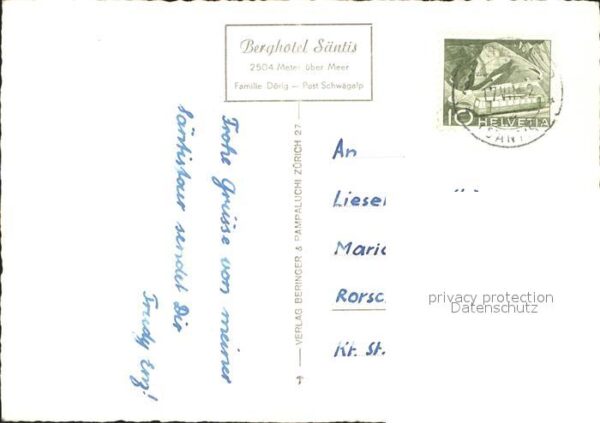 Berghotel Säntis
2504 Meter über Meer
Familie Dörig — Post Schwägalp
10 HELVETIA
SÄNTIS
Frohe Grüsse von meiner
Säntistour sendet Dir
Trudy
VERLAG BERINGER & PAMPALUCHI ZÜRICH 27
An
Liesel
Maria
Rorsc
Kt. St.
privacy protection
Datenschutz